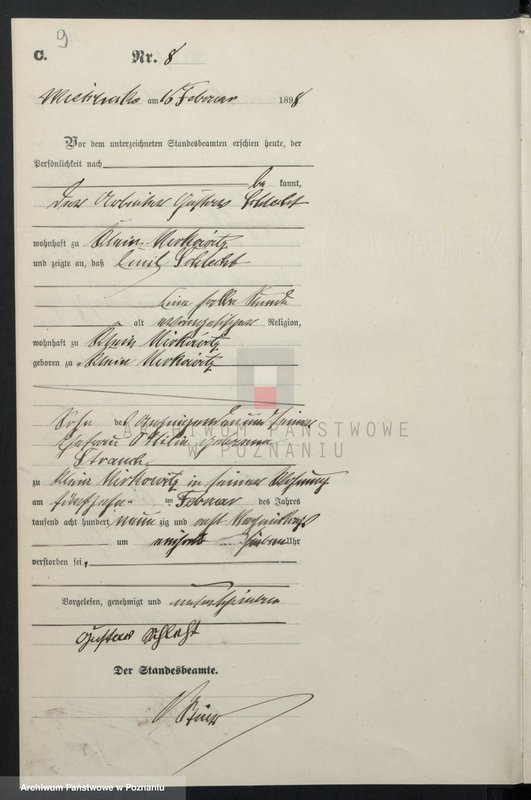 9
C.
Nr. 8
am 16 Februar 1898
Vor dem unterzeichneten Standesbeamten erschien heute, der
Persönlichkeit nach
be kannt,
der Arbeiter Gustav Schlecht
wohnhaft zu Klein
und zeigte an, daß Emil Schlecht
eine halbe Stunde
alt evangelischer Religion,
wohnhaft zu Klein
geboren zu Klein
Sohn des Anzeigenden und seiner
Ehefrau Ottilie geborene
zu Klein in seiner Wohnung
am fünfzehn ten Februar des Jahres
tausend acht hundert neun zig und acht Nachmittags
um Uhr
verstorben sei,
Vorgelesen, genehmigt und unterschrieben
Gustav Schleht
Der Standesbeamte.
ARCHIWUM PAŃSTWOWE
W POZNANIU
Archiwum Państwowe w Poznaniu